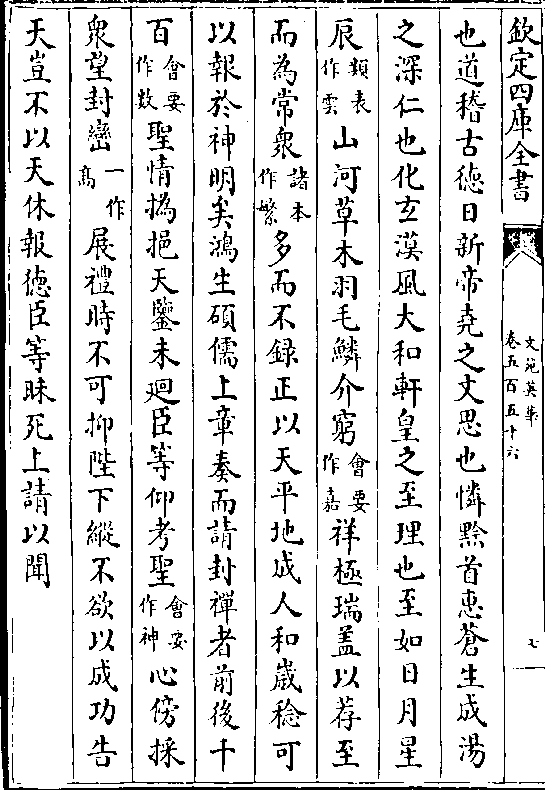 欽定四庫全書
文苑英華
卷五百五十六
七
也道稽古德日新帝堯之文思也憐黔首惠蒼生成湯
之深仁也化玄漠風大和軒皇之至理也至如日月星
辰類表作雲山河草木羽毛鱗介窮會要作嘉祥極瑞盖以荐至
而為常衆諸本作繁多而不録正以天平地成人和嵗稔可
以報於神明矣鴻生碩儒上章奏而請封禪者前後千
百會要作數聖情撝挹天鑒未廻臣等仰考聖會要作神心傍採
衆望封巒一作髙展禮時不可抑陛下縱不欲以成功告
天豈不以天休報德臣等昧死上請以聞